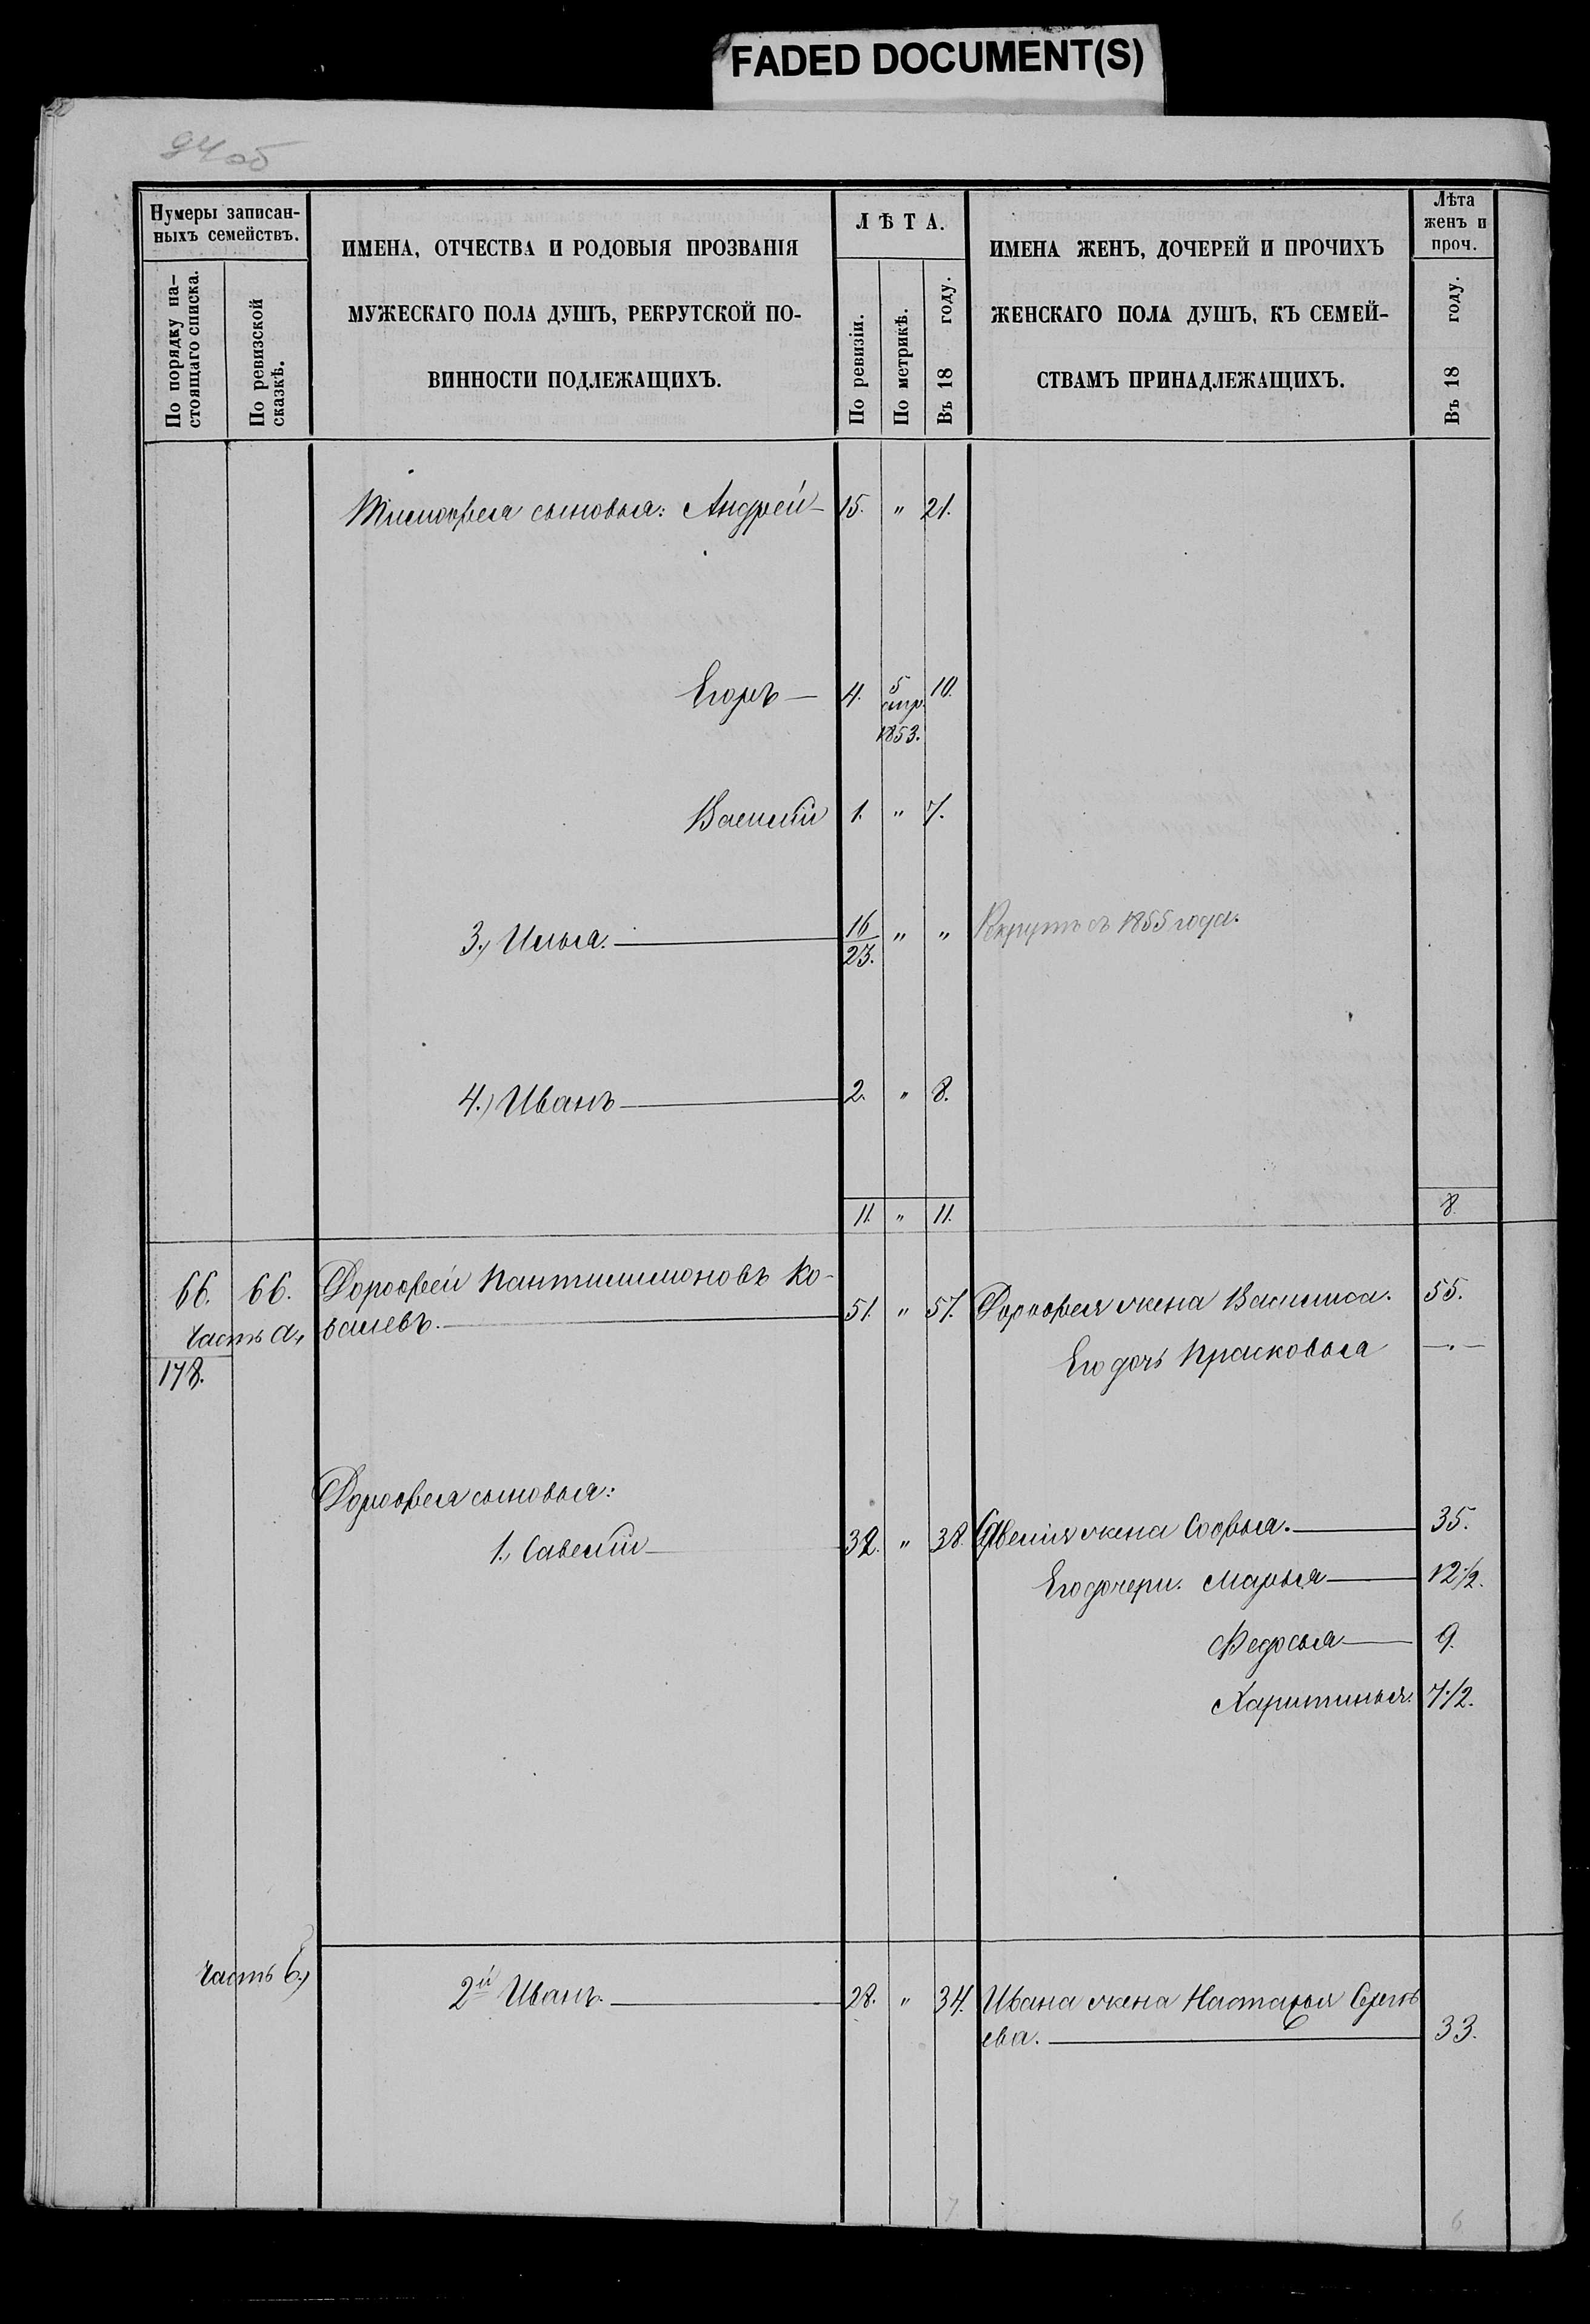 FADED DOCUMENT(S)
94 об
Нумеры записан-
ныхъ семействъ.
По порядку на-
стоящаго списка.
По ревизской
сказкѣ.
ИМЕНА, ОТЧЕСТВА И РОДОВЫЯ ПРОЗВАНІЯ
МУЖЕСКАГО ПОЛА ДУШЪ, РЕКРУТСКОЙ ПО-
ВИННОСТИ ПОДЛЕЖАЩИХЪ.
ЛѢТА.
По ревизіи.
По метрикѣ.
Въ 18 году.
ИМЕНА ЖЕНЪ, ДОЧЕРЕЙ И ПРОЧИХЪ
ЖЕНСКАГО ПОЛА ДУШЪ, КЪ СЕМЕЙ-
СТВАМЪ ПРИНАДЛЕЖАЩИХЪ.
Лѣта
женъ и
проч.
Въ 18 году.
Тимофея сыновья: Андрей — 15. " 21.
Егоръ — 4. 5 апр. 1853. 10.
Василій 1. " 7.
3.) Илья. — 16/23. " " Рекрутъ съ 1855 года.
4.) Иванъ — 2. " 8.
11. " 11. 8.
66. 66. Дорофей Пантилимоновъ Ко-
Часть а., валевъ. — 51. " 57. Дорофея жена Василиса. 55.
178. Его дочь Прасковья —.—
Дорофея сыновья:
1., Савелій — 32. " 38. Савелія жена Софья. — 35.
Его дочери. Марья — 12 1/2.
Федосья — 9.
Харитинья. 7 1/2.
Часть б.,) 2й Иванъ. — 28. " 34. Ивана жена Настасья Сергѣ
ева. — 33.
7 6